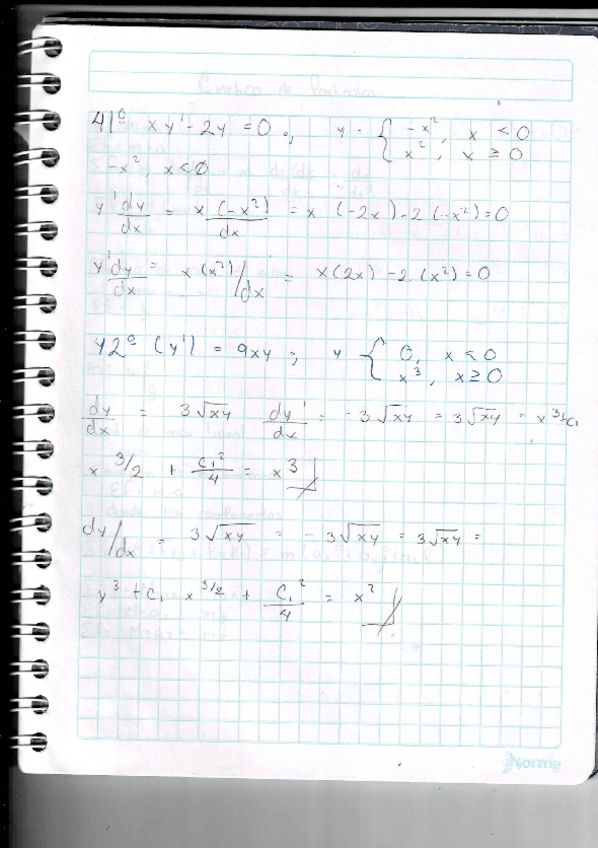 41º xy' - 2y = 0 ; y = { -x², x < 0
x², x ≥ 0
-x², x < 0
y' dy/dx = x (-x²)/dx = x (-2x) - 2 (-x²) = 0
y' dy/dx = x (x²)/dx = x(2x) - 2 (x²) = 0
42º (y') = 9xy ; y { 0, x < 0
x³, x ≥ 0
dy/dx = 3√xy dy'/dx = -3√xy = 3√xy =
x^3/2 + C₁²/4 = x³
dy/dx = 3√xy = -3√xy = 3√xy =
x³ + C₁ x^3/2 + C₁²/4 = x²
Norma